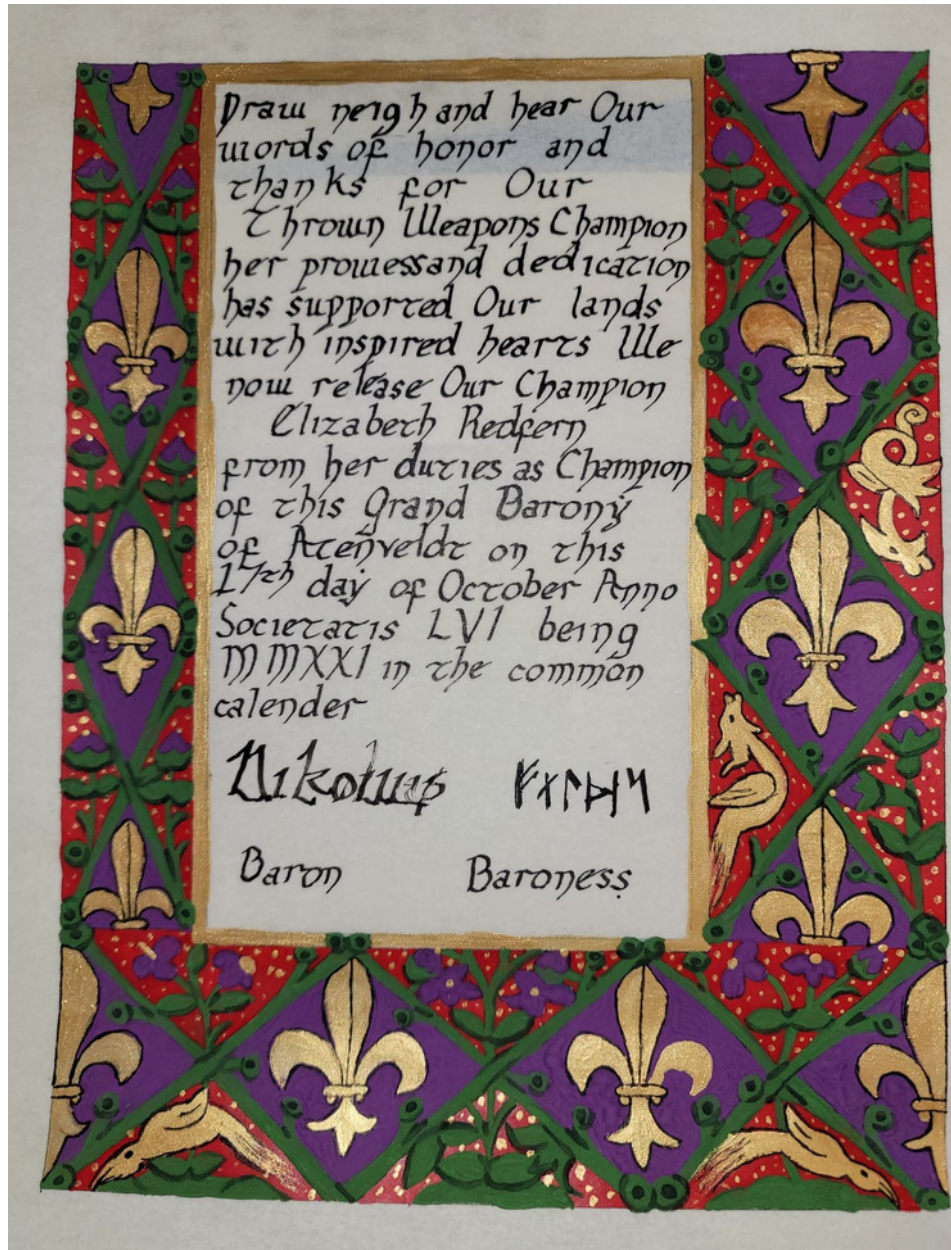 Draw neigh and hear Our
words of honor and
thanks for Our
Thrown Weapons Champion
her prowess and dedication
has supported Our lands
with inspired hearts We
now release Our Champion
Elizabeth Redfern
from her duties as Champion
of this Grand Barony
of Atenveldt on this
17th day of October Anno
Societatis LVI being
MMXXI in the common
calender
Nikolaus ᚠᚨᛚᚦᛋ
Baron Baroness